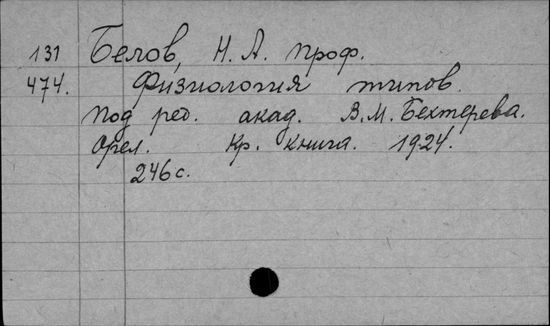 131 Белов, Н. А. проф.
474. Физиология типов.
Под ред. акад. В.М. Бехтерева.
Орел. Кр. книга. 1924.
246 с.